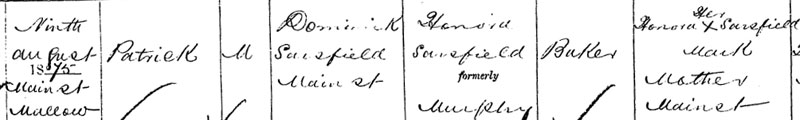 Ninth
August
1875
Main st
Mallow
Patrick
M
Dominick
Sarsfield
Main st
Honora
Sarsfield
formerly
Murphy
Baker
Her
Honora X Sarsfield
Mark
Mother
Main st